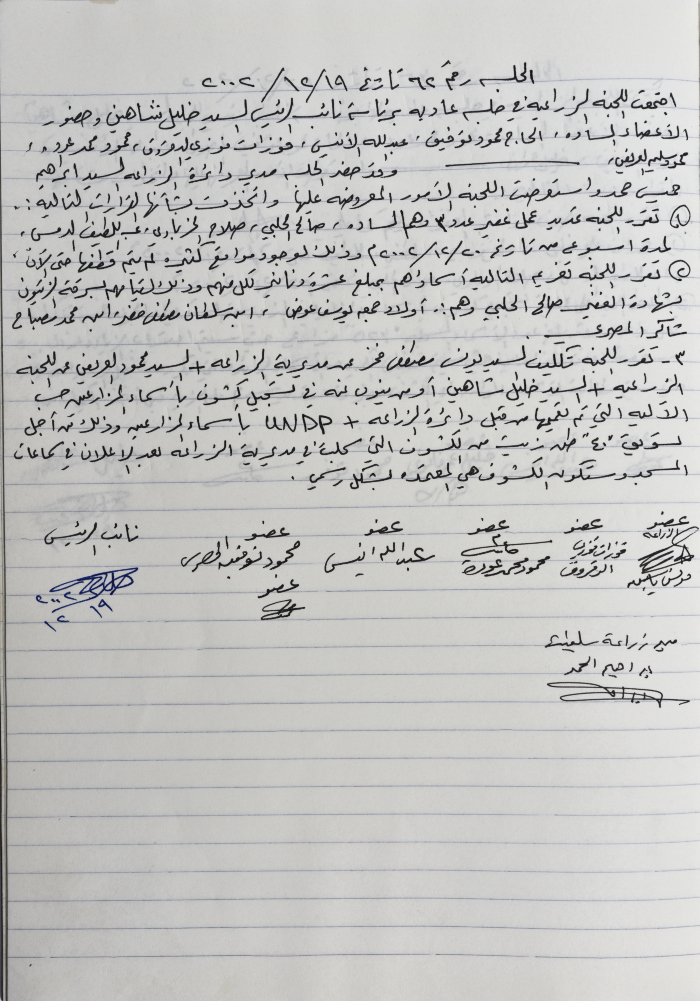 الجلسه رقم ٦٢ تاريخ ٢٠٠٢/١٢/١٩
اجتمعت اللجنه الزراعيه في جلسه عاديه برئاسة نائب الرئيس السيد خليل شاهين وحضور
الأعضاء الساده، الحاج محمود توفيق، عبدالله الأنيس، فوزات فوزي الدقروق، محمود محمد عوده،
محمود سليم العريض، وقد حضر الجلسه مدير دائرة الزراعه السيد ابراهيم
محمد واستعرضت اللجنه الأمور المعروضه عليها واتخذت بشأنها القرارات التاليه :.
١ تقرر اللجنه تمديد عمل غفير عدد ٣ وهم الساده، صالح الحلبي، صلاح عبد اللطيف
لمدة اسبوعين من تاريخ ٢٠٠٢/١٢/٢٠م وذلك لوجود مواقع كثيره لم يتم قطفها حتى الآن.
٢ تقرر اللجنه تغريم التاليه أسماؤهم بمبلغ عشرة دنانير لكل منهم وذلك لقيامهم بسرقة الزيتون
بشهادة الغفير صالح الحلبي وهم :. أولاد جمعه يوسف عوض، ابن سلطان مصطفى، ابن محمد مصباح
شاكر المصري.
٣- تقرر اللجنه تكليف السيد يونس مصطفى من مديرية الزراعه + السيد محمود العريض من اللجنه
الزراعيه + السيد خليل شاهين أو من ينوب عنه في تسجيل كشوف بأسماء المزارعين حسب
الآليه التي تم تعميمها من قبل دائرة الزراعه + UNDP بأسماء المزارعين وذلك من أجل
تسويق "٤٠" طن زيت من الكشوف التي سجلت في مديرية الزراعه بعد الإعلان في سماعات
المسجد وستكون الكشوف هي المعتمده بشكل رسمي.
عضو عضو عضو عضو عضو نائب الرئيس
الزراعه فوزات فوزي محمود محمد عودة عبدالله انيس محمود توفيق
الدقروق
عضو
٢٠٠٢
١٢ ١٩
مدير زراعة سلفيت
ابراهيم الحمد